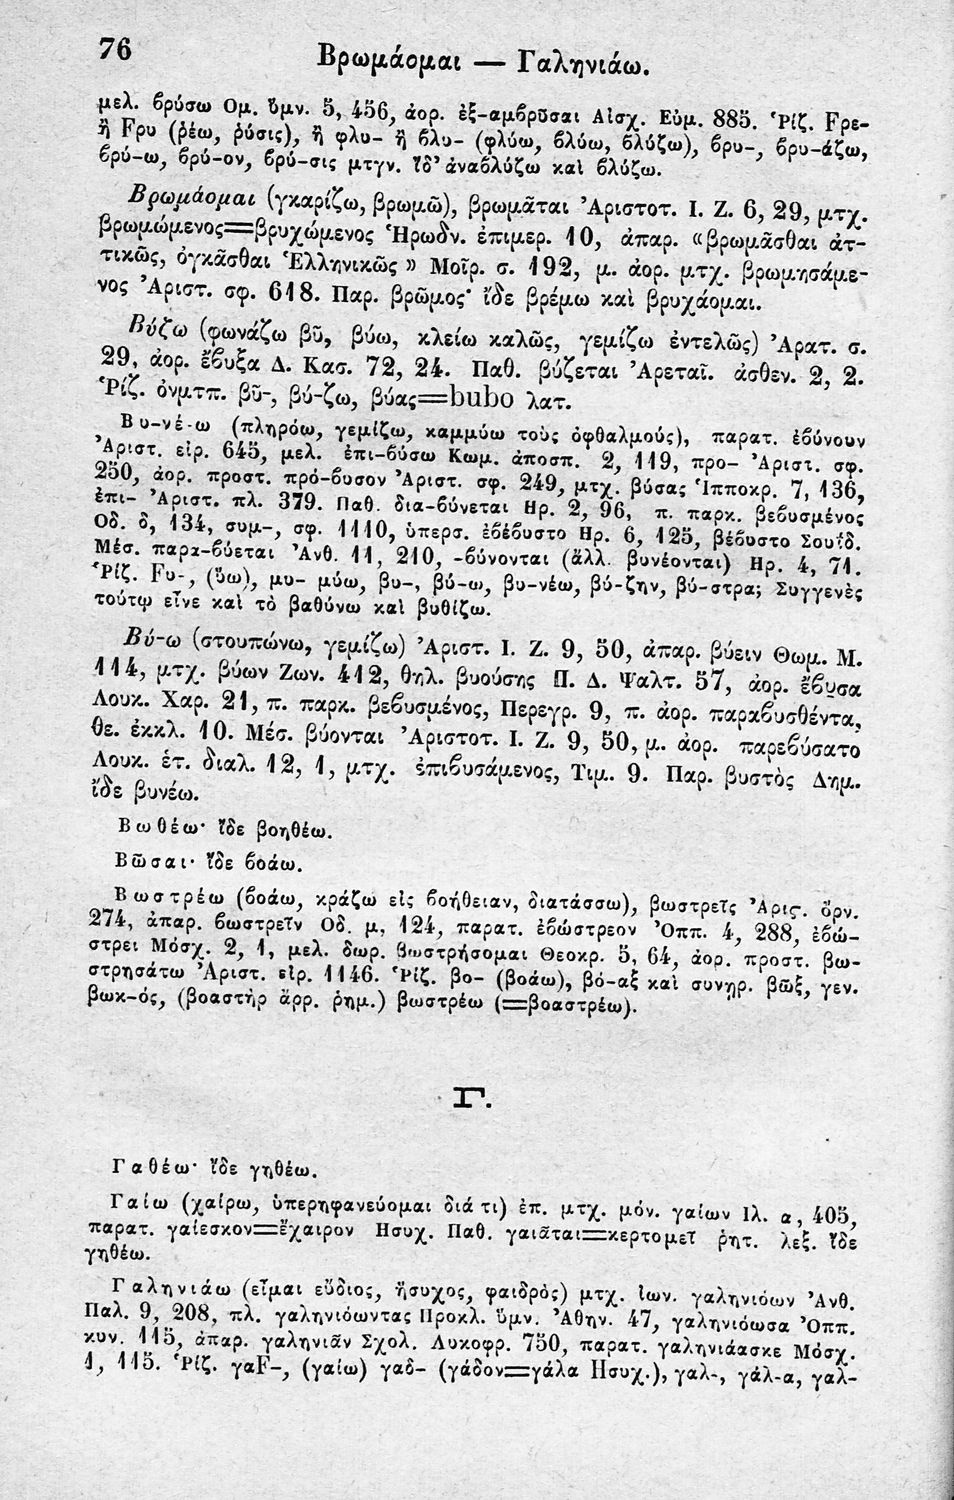 76
Βρωμάομαι — Γαληνιάω.
μελ. βρύσω Ομ. ὕμν. 5, 456, ἀορ. ἐξ-αμβρῦσαι Αἰσχ. Εὐμ. 885. Ῥίζ. Fρε-
ἢ Fρυ (ῥέω, ῥύσις), ἢ φλυ- ἢ βλυ- (φλύω, βλύω, βλύζω), βρυ-, βρυ-άζω,
βρύ-ω, βρύ-ον, βρύ-σις μτγν. ἴδ’ ἀναβλύζω καὶ βλύζω.
Βρωμάομαι (γκαρίζω, βρωμῶ), βρωμᾶται Ἀριστοτ. Ι. Ζ. 6, 29, μτχ.
βρωμώμενος=βρυχώμενος Ἡρωδν. ἐπιμερ. 10, ἀπαρ. «βρωμᾶσθαι ἀτ-
τικῶς, ὀγκᾶσθαι Ἑλληνικῶς» Μοῖρ. σ. 192, μ. ἀορ. μτχ. βρωμησάμε-
νος Ἀριστ. σφ. 618. Παρ. βρῶμος· ἴδε βρέμω καὶ βρυχάομαι.
Βύζω (φωνάζω βῦ, βύω, κλείω καλῶς, γεμίζω ἐντελῶς) Ἀρατ. σ.
29, ἀορ. ἔβυξα Δ. Κασ. 72, 24. Παθ. βύζεται Ἀρεταῖ. ἀσθεν. 2, 2.
Ῥίζ. ὀνμτπ. βῦ-, βύ-ζω, βύας=bubo λατ.
Βυ-νέ-ω (πληρόω, γεμίζω, καμμύω τοὺς ὀφθαλμούς), παρατ. ἐβύνουν
Ἀριστ. εἰρ. 645, μελ. ἐπι-βύσω Κωμ. ἀποσπ. 2, 119, προ- Ἀριστ. σφ.
250, ἀορ. προστ. πρό-βυσον Ἀριστ. σφ. 249, μτχ. βύσας Ἱπποκρ. 7, 136,
ἐπι- Ἀριστ. πλ. 379. Παθ. δια-βύνεται Ηρ. 2, 96, π. παρκ. βεβυσμένος
Οδ. δ, 134, συμ-, σφ. 1110, ὑπερσ. ἐβέβυστο Ηρ. 6, 125, βέβυστο Σουΐδ.
Μέσ. παρα-βύεται Ἀνθ. 11, 210, -βύνονται (ἄλλ. βυνέονται) Ηρ. 4, 71.
Ῥίζ. Fυ-, (ὕω), μυ- μύω, βυ-, βύ-ω, βυ-νέω, βύ-ζην, βύ-στρα; Συγγενὲς
τούτῳ εἶνε καὶ τὸ βαθύνω καὶ βυθίζω.
Βύ-ω (στουπώνω, γεμίζω) Ἀριστ. Ι. Ζ. 9, 50, ἀπαρ. βύειν Θωμ. Μ.
114, μτχ. βύων Ζων. 412, θηλ. βυούσης Π. Δ. Ψαλτ. 57, ἀορ. ἔβυσα
Λουκ. Χαρ. 21, π. παρκ. βεβυσμένος, Περεγρ. 9, π. ἀορ. παραβυσθέντα,
θε. ἐκκλ. 10. Μέσ. βύονται Ἀριστοτ. Ι. Ζ. 9, 50, μ. ἀορ. παρεβύσατο
Λουκ. ἑτ. διαλ. 12, 1, μτχ. ἐπιβυσάμενος, Τιμ. 9. Παρ. βυστὸς Δημ.
ἴδε βυνέω.
Βωθέω· ἴδε βοηθέω.
Βῶσαι· ἴδε βοάω.
Βωστρέω (βοάω, κράζω εἰς βοήθειαν, διατάσσω), βωστρεῖς Ἀρις. ὄρν.
274, ἀπαρ. βωστρεῖν Οδ. μ, 124, παρατ. ἐβώστρεον Ὀππ. 4, 288, ἐβώ-
στρει Μόσχ. 2, 1, μελ. δωρ. βωστρήσομαι Θεοκρ. 5, 64, ἀορ. προστ. βω-
στρησάτω Ἀριστ. εἰρ. 1146. Ῥίζ. βο- (βοάω), βό-αξ καὶ συνῃρ. βῶξ, γεν.
βωκ-ός, (βοαστὴρ ἄρρ. ῥημ.) βωστρέω (=βοαστρέω).
Γ.
Γαθέω· ἴδε γηθέω.
Γαίω (χαίρω, ὑπερηφανεύομαι διά τι) ἐπ. μτχ. μόν. γαίων Ιλ. α, 405,
παρατ. γαίεσκον=ἔχαιρον Ησυχ. Παθ. γαιᾶται=κερτομεῖ ῥητ. λεξ. ἴδε
γηθέω.
Γαληνιάω (εἶμαι εὔδιος, ἥσυχος, φαιδρὸς) μτχ. ἰων. γαληνιόων Ἀνθ.
Παλ. 9, 208, πλ. γαληνιόωντας Προκλ. ὕμν. Ἀθην. 47, γαληνιόωσα Ὀππ.
κυν. 115, ἀπαρ. γαληνιᾶν Σχολ. Λυκοφρ. 750, παρατ. γαληνιάασκε Μόσχ.
1, 115. Ῥίζ. γαF-, (γαίω) γαδ- (γάδον=γάλα Ησυχ.), γαλ-, γάλ-α, γαλ-